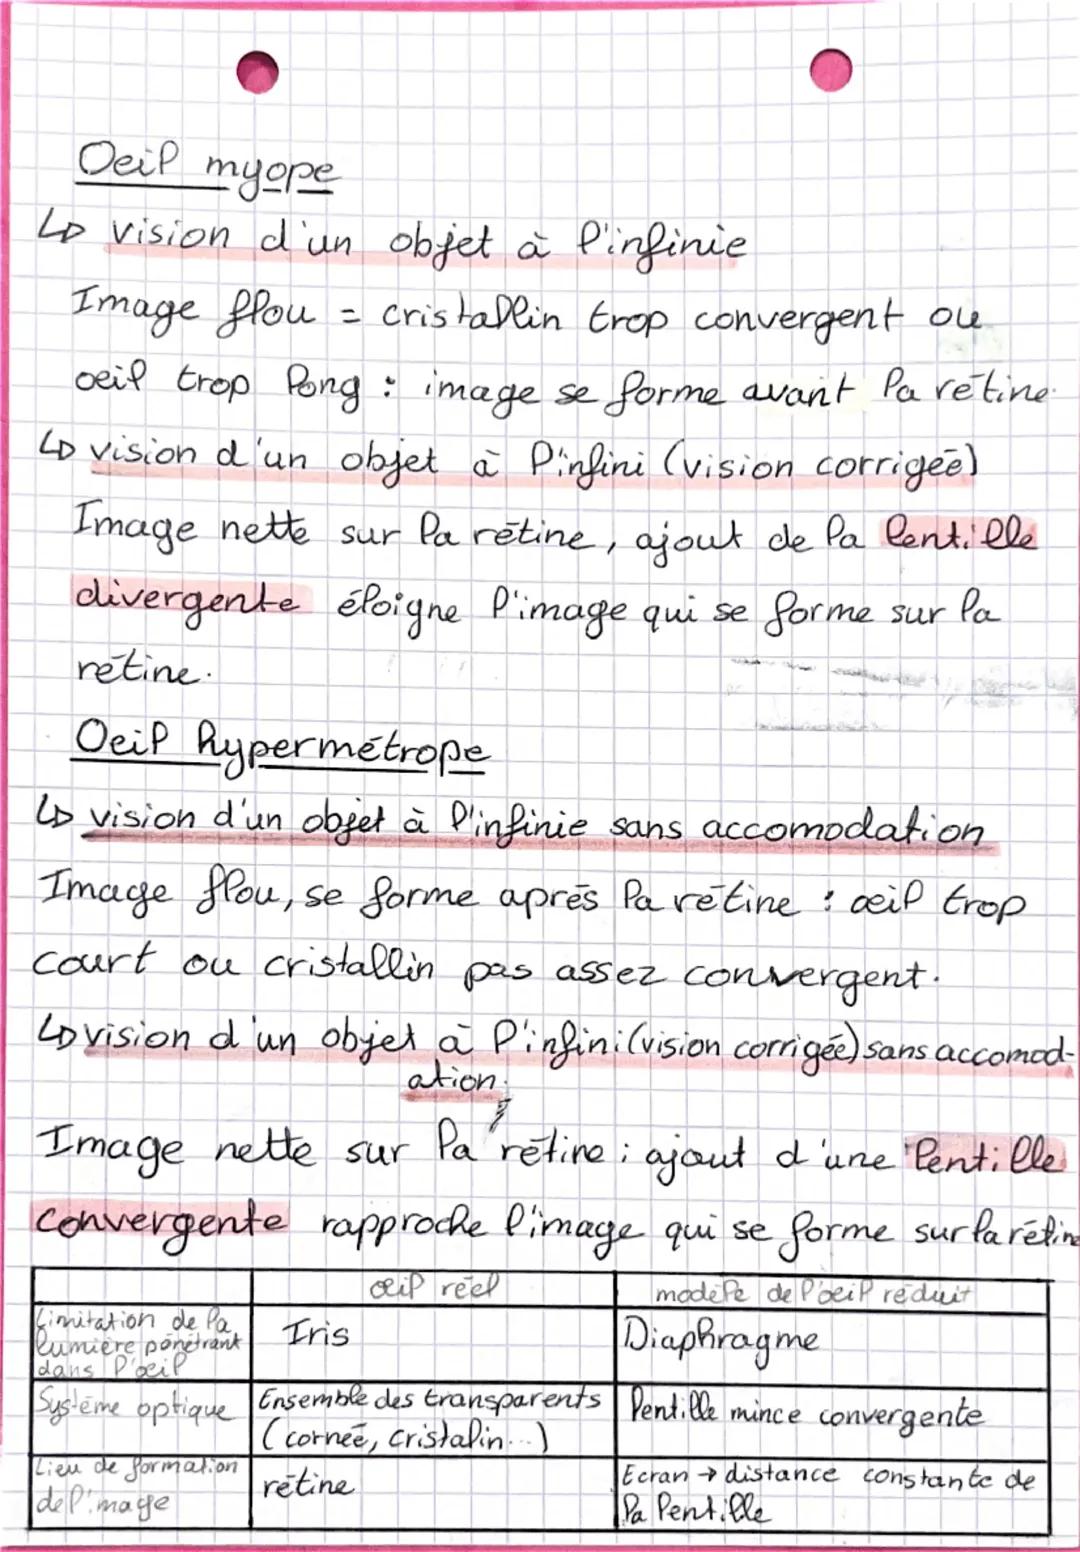 Oeil myope
↳ vision d'un objet à l'infinie
Image flou = cristallin trop convergent ou
oeil trop long : image se forme avant la rétine.
↳ vision d'un objet à l'infini (vision corrigée)
Image nette sur la rétine, ajout de la lentille
divergente éloigne l'image qui se forme sur la
rétine.
Oeil hypermétrope
↳ vision d'un objet à l'infinie sans accomodation
Image flou, se forme après la rétine : œil trop
court ou cristallin pas assez convergent.
↳ vision d'un objet à l'infini (vision corrigée) sans accomod-
ation.
Image nette sur la rétine ; ajout d'une lentille
convergente rapproche l'image qui se forme sur la rétine
œil réel modèle de l'œil réduit
Limitation de la
lumière pénétrant
dans l'œil
Iris
Diaphragme
Système optique
Ensemble des transparents
(cornée, cristalin...)
lentille mince convergente
Lieu de formation
de l'image
rétine
Ecran → distance constante de
la lentille